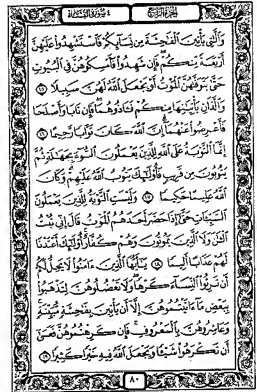 الجزء الرابع سورة النساء
وَٱلَّٰتِي يَأۡتِينَ ٱلۡفَٰحِشَةَ مِن نِّسَآئِكُمۡ فَٱسۡتَشۡهِدُواْ عَلَيۡهِنَّ
أَرۡبَعَةٗ مِّنكُمۡۖ فَإِن شَهِدُواْ فَأَمۡسِكُوهُنَّ فِي ٱلۡبُيُوتِ
حَتَّىٰ يَتَوَفَّىٰهُنَّ ٱلۡمَوۡتُ أَوۡ يَجۡعَلَ ٱللَّهُ لَهُنَّ سَبِيلٗا ١٥
وَٱلَّذَانِ يَأۡتِيَٰنِهَا مِنكُمۡ فَـَٔاذُوهُمَاۖ فَإِن تَابَا وَأَصۡلَحَا
فَأَعۡرِضُواْ عَنۡهُمَآۗ إِنَّ ٱللَّهَ كَانَ تَوَّابٗا رَّحِيمًا ١٦
إِنَّمَا ٱلتَّوۡبَةُ عَلَى ٱللَّهِ لِلَّذِينَ يَعۡمَلُونَ ٱلسُّوٓءَ بِجَهَٰلَةٖ ثُمَّ
يَتُوبُونَ مِن قَرِيبٖ فَأُوْلَٰٓئِكَ يَتُوبُ ٱللَّهُ عَلَيۡهِمۡۗ وَكَانَ
ٱللَّهُ عَلِيمًا حَكِيمٗا ١٧ وَلَيۡسَتِ ٱلتَّوۡبَةُ لِلَّذِينَ يَعۡمَلُونَ
ٱلسَّيِّـَٔاتِ حَتَّىٰٓ إِذَا حَضَرَ أَحَدَهُمُ ٱلۡمَوۡتُ قَالَ إِنِّي تُبۡتُ
ٱلۡـَٰٔنَ وَلَا ٱلَّذِينَ يَمُوتُونَ وَهُمۡ كُفَّارٌۚ أُوْلَٰٓئِكَ أَعۡتَدۡنَا
لَهُمۡ عَذَابًا أَلِيمٗا ١٨ يَٰٓأَيُّهَا ٱلَّذِينَ ءَامَنُواْ لَا يَحِلُّ لَكُمۡ
أَن تَرِثُواْ ٱلنِّسَآءَ كَرۡهٗاۖ وَلَا تَعۡضُلُوهُنَّ لِتَذۡهَبُواْ
بِبَعۡضِ مَآ ءَاتَيۡتُمُوهُنَّ إِلَّآ أَن يَأۡتِينَ بِفَٰحِشَةٖ مُّبَيِّنَةٖۚ
وَعَاشِرُوهُنَّ بِٱلۡمَعۡرُوفِۚ فَإِن كَرِهۡتُمُوهُنَّ فَعَسَىٰٓ
أَن تَكۡرَهُواْ شَيۡـٔٗا وَيَجۡعَلَ ٱللَّهُ فِيهِ خَيۡرٗا كَثِيرٗا ١٩
٨٠